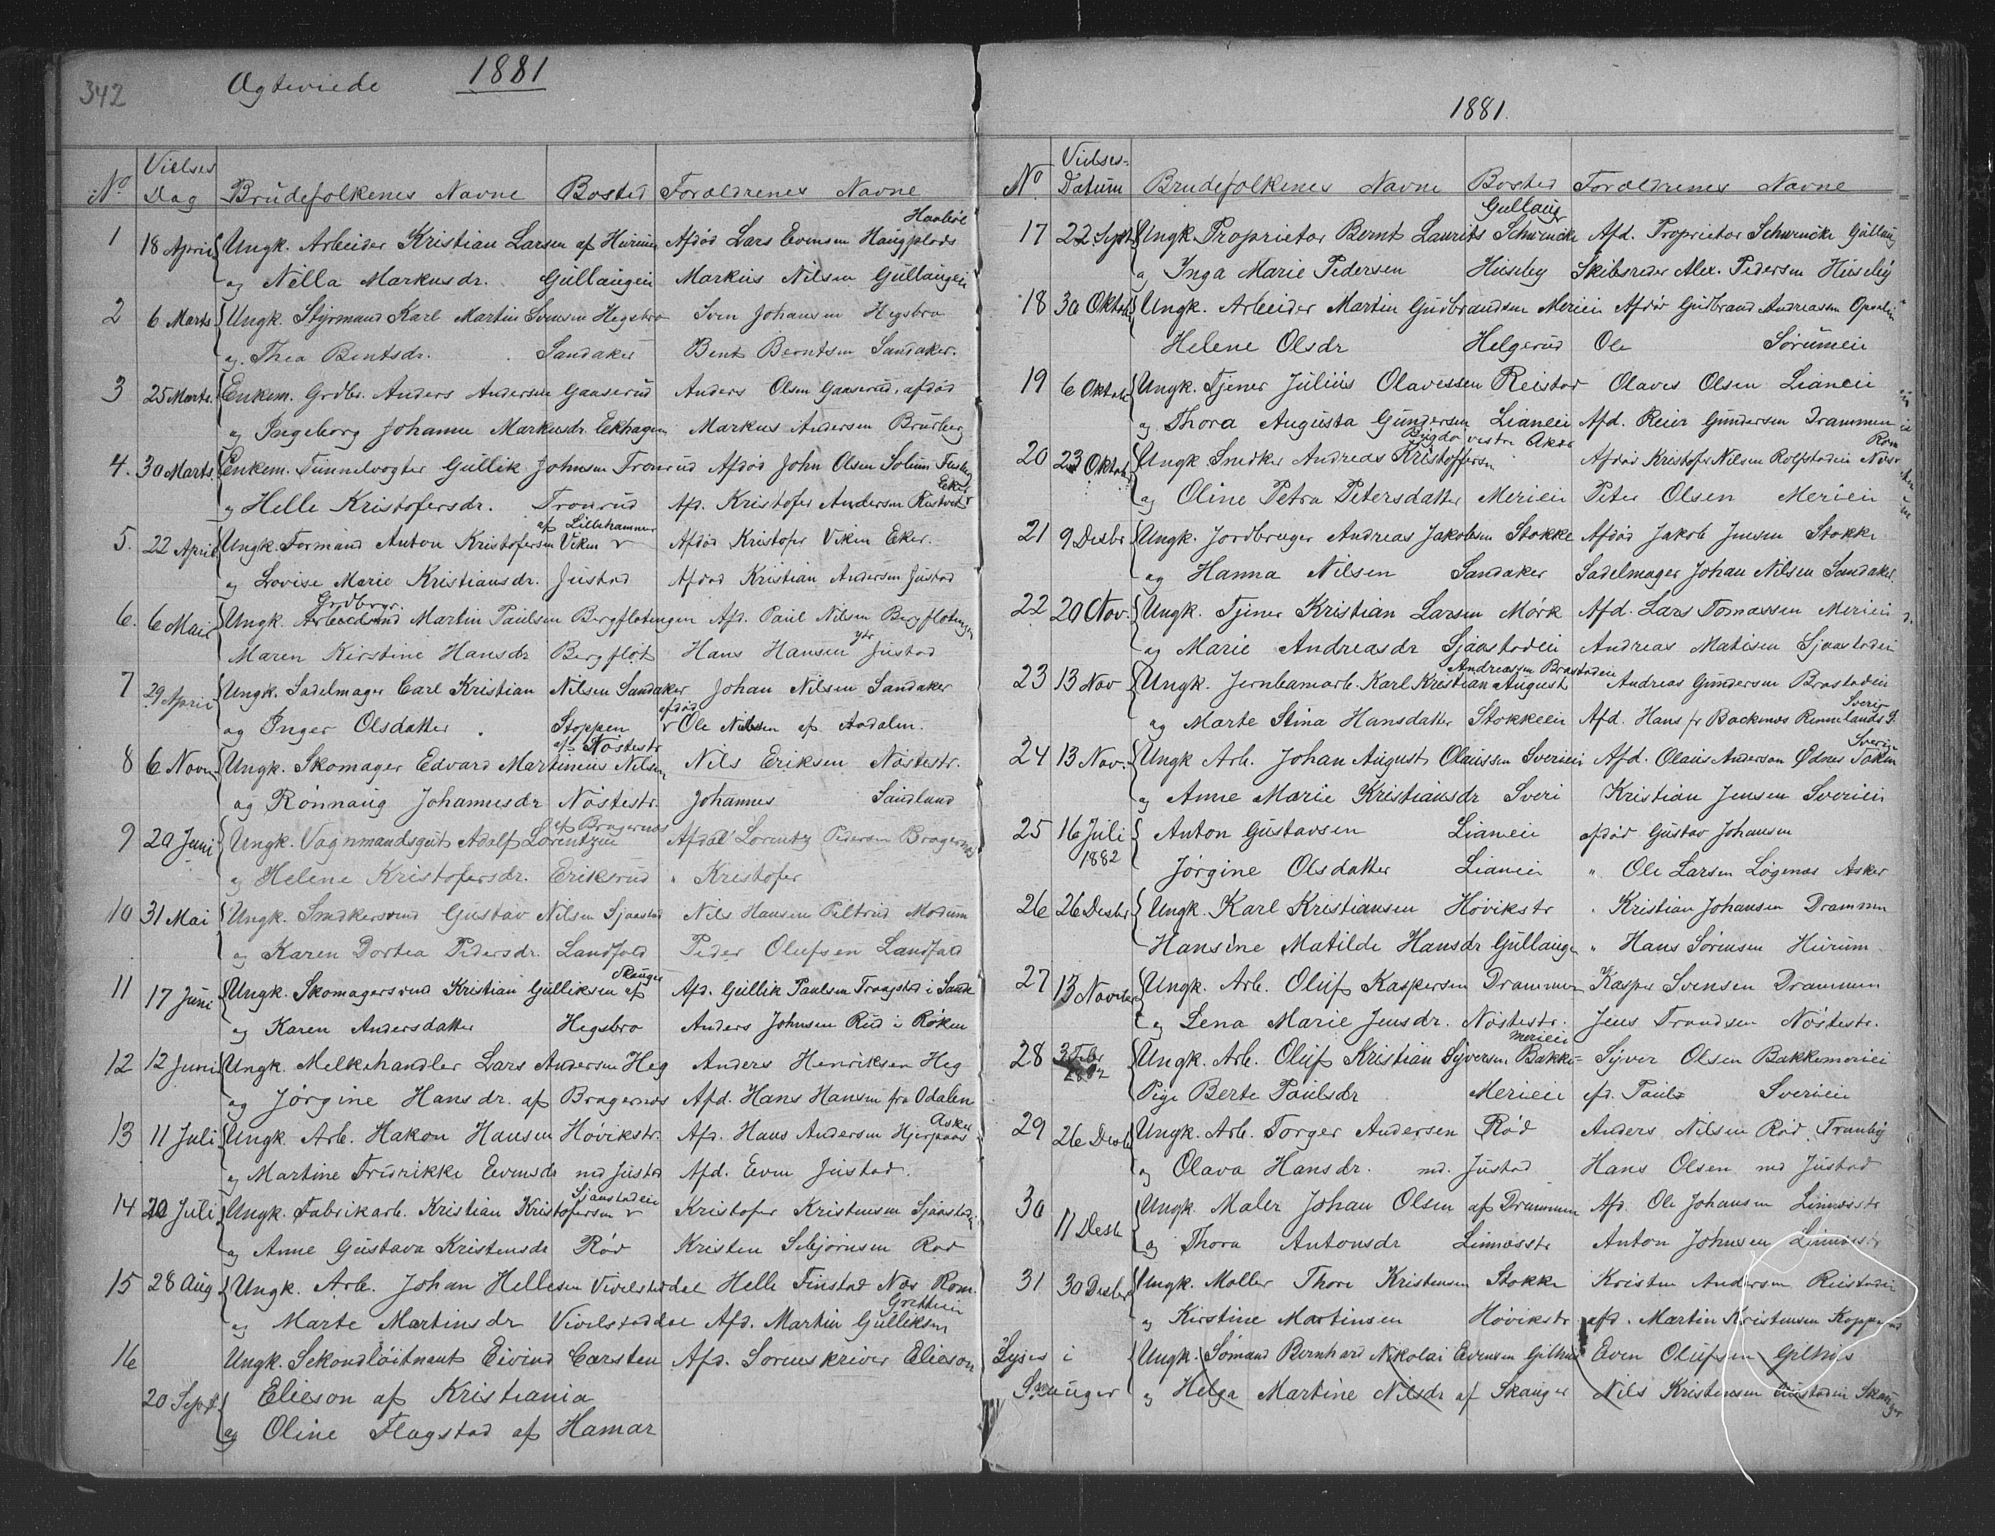 342
Ogteviede 1881
No Vielses Dag Brudefolkenes Navne Bosted Forældrenes Navne
1 18 April Ungk. Arbeider Kristian Larsen af Hurum Afdød Lars Evensen Haugplads
og Nilla Markusdr. Gullaugen Markus Nilsen Gullaugen
2 6 Marts Ungk. Styrmand Karl Martin Svensen Hegsbro Sven Johansen Hegsbro
og. Thea Bentsdr. Sandaker Bent Berntsen Sandaker.
3 25 Marts. Enkem. Grdbr. Anders Andersen Gaaserud Anders Olsen Gaaserud, afdød
og Ingeborg Johanne Markusdr. Ekhagen Markus Andersen Brurberg
4. 30 Marts. Enkem. Tunnelvogter Gullik Johnsen Tronrud Afdød John Olsen Solum
Eker
og Helle Kristofersdr. Tronrud Afd. Kristofer Andersen
af Lillehammer
5. 22 April Ungk. Formand Anton Kristofersen Viken v Afdød Kristofer Viken Eker.
og Lovise Marie Kristiansdr. Justad Afdød Kristian Andersen Justad
Grdbrgr.
6. 6 Mai Ungk. Martin Paulsen Bergflotungen Afd. Paul Nilsen Bergflotungen
Maren Kirstine Hansdr Bergflot Hans Hansen ytr Justad
7 29 April Ungk. Sadelmager Carl Kristian Nilsen Sandaker Johan Nilsen Sandaker
afdød
og Inger Olsdatter Stoppen v Ole Nilsen af Aadalen.
af Nöstestr
8 6 Novem Ungk. Skomager Edvard Martinius Nilsen Nils Eriksen Nöstestr.
og Rönnaug Johannesdr Nöstestr. Johannes Sandland
af Bragernæs
9 20 Juni Ungk. Vognmandsgut Adolf Lorentzen Afdød Lorentz Pedersen Bragernæs
og Helene Kristofersdr. Eriksrud " Kristofer
10 31 Mai Ungk. Snedkersvend Gustav Nilsen Sjaastad Nils Hansen Peltrud Modum
og Karen Dortea Pedersdr. Landfald Peder Olufsen Landfald
Skauger
11 17 Juni Ungk. Skomagersvend Kristian Gulliksen af Afd. Gullik Paulsen i Sande
og Karen Andersdatter Hegsbro Anders Johnsen Rud i Røken
12 12 Juni Ungk. Melkehandler Lars Andersen Heg Anders Henriksen Heg
og Jørgine Hansdr. af Bragernæs Afd. Hans Hansen fra Odalen
Asker
13 11 Juli Ungk. Arb. Hakon Hansen Høvikstr. Afd. Hans Andersen
og Martine Fredrikke Evensdr nd Justad Afd. Even Justad.
Sjaastadeie
14 20 Juli Ungk. Fabrikarb. Kristian Kristofersen v Kristofer Kristensen
og Anne Gustava Kristensdr Rød Kristen Rød
15 28 Aug Ungk. Arb. Johan Hellesen Vivelstaddel Helle Finstad Næs Rom.
og Marte Martinsdr Vivelstaddel Afd. Martin Gulliksen
16 Ungk. Sekondløitnant Eivind Carsten Afd. Sorenskriver Elieson
20 Sept. Elieson af Kristiania
og Oline Flagstad af Hamar
1881.
No Vielses-Datum Brudefolkenes Navne Bosted Forældrenes Navne
Gullaug
17 22 Sept Ungk. Proprietær Bernt Laurits Schwencke Afd. Proprietær Schwencke Gullaug
og Inga Marie Pedersen Huseby Skibsreder Alex. Pedersen Huseby
18 30 Oktob Ungk. Arbeider Martin Gudbrandsen Merieei Afdød Gudbrand Andreasen
Helene Olsdr Helgerud Ole Sørumeie
19 6 Oktob Ungk. Tjener Julius Olavessen Reistad Olaves Olsen Lianeie
og Thora Augusta Gundersen Lianeie Afd. Reier Gundersen Drammen
Bygdø vestre Aker
20 23 Oktob Ungk Snedker Andreas Kristoffersen Afdød Kristofer Nilsen Rolfstadeie
og Oline Petra Petersdatter Merieei Peter Olsen Merieei
21 9 Desbr Ungk. Jordbruger Andreas Jakobsen Stokke Afdød Jakob Jensen Stokke
og Hanna Nilsen Sandaker Sadelmager Johan Nilsen Sandaker.
22 20 Nov. Ungk. Tjener Kristian Larsen Mörk Afd. Lars Tomassen Merieei
og Marie Andreasdr Sjaastadeie Andreas Matisen Sjaastadeie
Andreassen Brastadeie
23 13 Nov Ungk. Jernbanearb. Karl Kristian August Andreas Gundersen Brastadeie
Sverig
og Marte Stina Hansdatter Stokkeeie Afd. Hans fr
Sverig
24 13 Nov. Ungk Arb. Johan August Olaussen Sverieei Afd. Olaus Anderson Ødnes
og Anne Marie Kristiansdr Sveri Kristian Jensen Sverieei
25 16 Juli Anton Gustavsen Lianeie afdød Gustav Johansen
1882
Jørgine Olsdatter Lianeie " Ole Larsen Løgenæs Asker
26 26 Desbr Ungk. Karl Kristiansen Høvikstr " Kristian Johansen Drammen
Hansine Matilde Hansdr Gullauge " Hans Sørensen Hurum.
27 13 Novebr Ungk. Arb. Oluf Kaspersen Drammen Kasper Svensen Drammen
og Lena Marie Jensdr. Nöstestr. Jens Trondsen Nöstestr.
merieei
28 3 Febr Ungk. Arb. Oluf Kristian Syversen Bakke- Syver Olsen Bakkemerieei
Pige Berte Paulsdr Merieei afd. Paul Sverieei
29 26 Desbr Ungk. Arb. Torger Andersen Rød Anders Nilsen Rød, Tranby
og Olava Hansdr. nd. Justad Hans Olsen nd Justad
30 11 Desbr Ungk. Maler Johan Olsen af Drammen Afd. Ole Johansen Linnæsstr
og Thora Antonsdr Linnæsstr Anton Johnsen Linnæsstr
31 30 Desbr Ungk. Møller Thore Kristensen Stokke Kristen Andersen Reistadeie
og Kirstine Martinsen Høvikstr afd. Martin Kristensen
Lyses i Ungk. Sømand Bernhard Nikolai Evensen Gilhus Even Olufsen Gilhus
Skauger og Helga Martine Nilsdr af Skauger Nils Kristensen Skauger